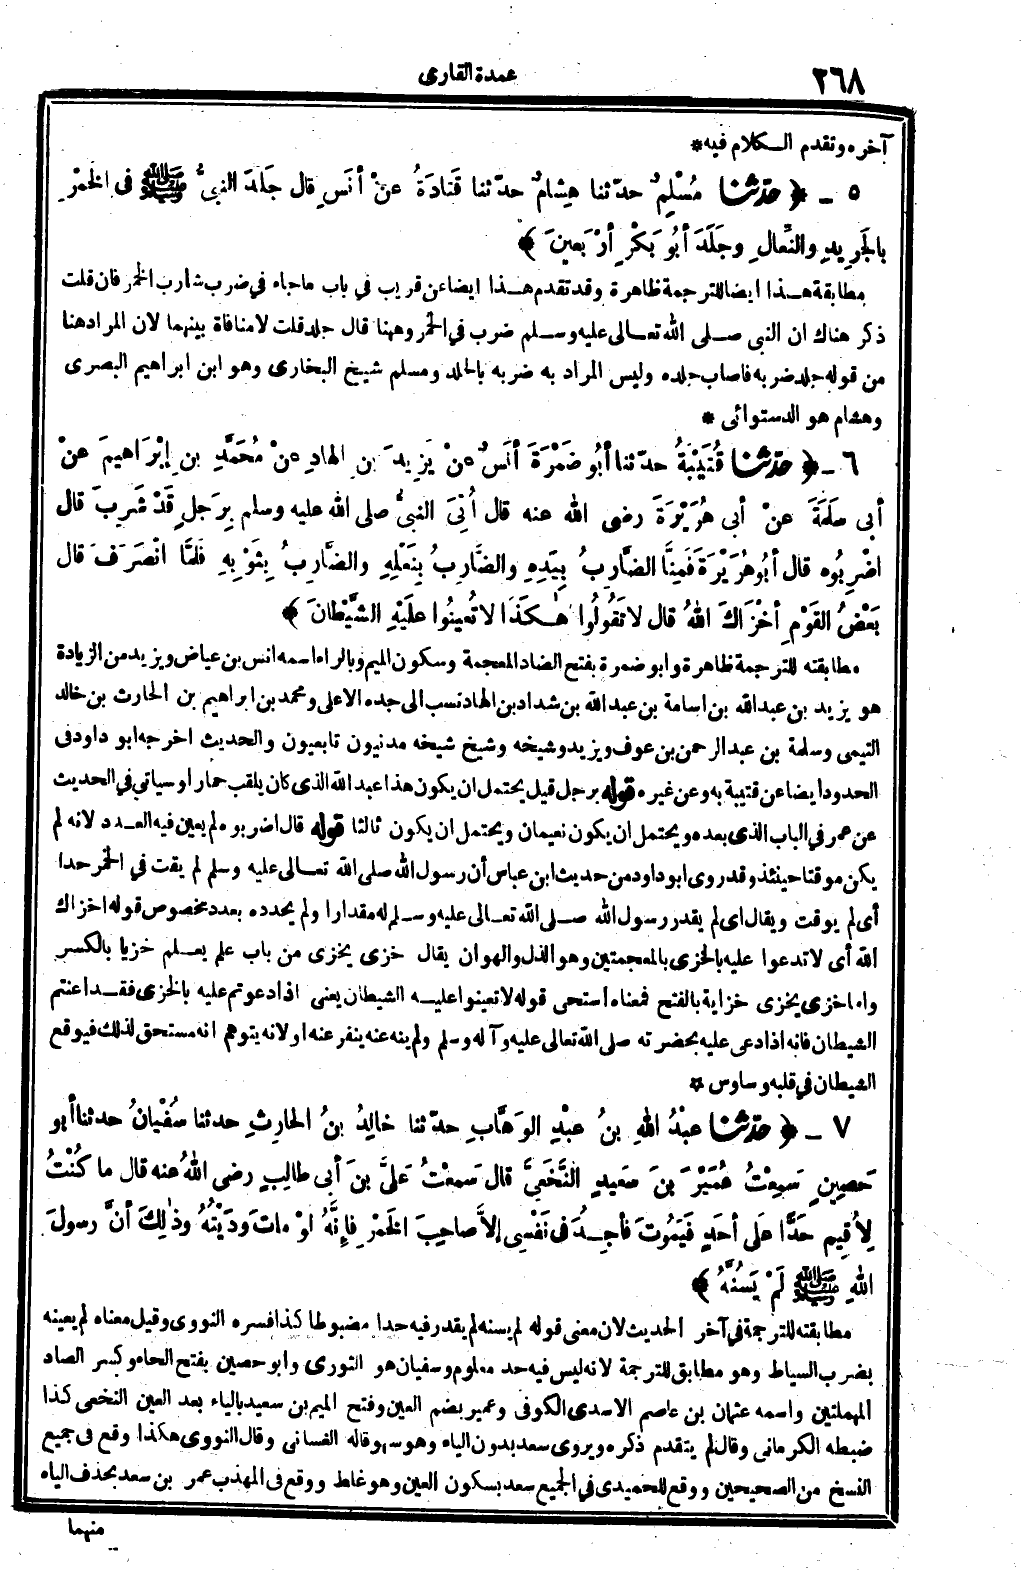 ٢٦٨
عمدة القارى
آخره وتقدم الكلام فيه *
٥ ـ ﴿ حدّثنا مُسْلِمٌ حدّثنا هِشامٌ حدّثنا قَتادَةُ عنْ أنَسٍ قال جَلَدَ النبىُّ ﷺ فى الخَمْرِ
بالجَرِيدِ والنِّعالِ وجَلَدَ أبُو بَكْرٍ أرْبَعِينَ ﴾
مطابقة هذا ايضا للترجمة ظاهرة وقد تقدم هذا ايضا عن قريب في باب ماجاء في ضرب شارب الخمر فان قلت
ذكر هناك ان النبي صلى الله تعالى عليه وسلم ضرب في الخمر وههنا قال جلد قلت لا منافاة بينهما لان المراد هنا
من قوله جلد ضربه فاصاب جلده وليس المراد به ضربه بالجلد ومسلم شيخ البخارى وهو ابن ابراهيم البصرى
وهشام هو الدستوائى *
٦ ـ ﴿ حدّثنا قُتَيْبَةُ حدّثنا أبُو ضَمْرَةَ أنَسٌ عنْ يَزِيدَ بنِ الهادِ عنْ مُحَمَّدِ بنِ إبْرَاهِيمَ عنْ
أبى سَلَمَةَ عنْ أبى هُرَيْرَةَ رضى الله عنه قال أُتِىَ النبىُّ صلى الله عليه وسلم بِرَجلٍ قَدْ شَرِبَ قال
اضْرِبُوه قال أبُو هُرَيْرَةَ فَمِنَّا الضَّارِبُ بِيَدِهِ والضَّارِبُ بِنَعْلِهِ والضَّارِبُ بِثَوْبِهِ فَلمَّا انْصَرَفَ قال
بَعْضُ القَوْمِ أخْزَاكَ اللهُ قال لاتَقُولُوا هٰكَذَا لا تُعِينُوا علَيْهِ الشَّيْطانَ ﴾
مطابقته للترجمة ظاهرة وابو ضمرة بفتح الضاد المعجمة وسكون الميم وبالراء اسمه انس بن عياض ويزيد من الزيادة
هو يزيد بن عبدالله بن اسامة بن عبدالله بن شداد بن الهاد نسب الى جده الاعلى ومحمد بن ابراهيم بن الحارث بن خالد
التيمى وسلمة بن عبدالرحمن بن عوف ويزيد وشيخه وشيخ شيخه مدنيون تابعيون والحديث اخرجه ابو داود فى
الحدود ايضا عن قتيبة به وعن غيره قوله برجل قيل يحتمل ان يكون هذا عبد الله الذى كان يلقب حمارا وسياتي في الحديث
عن عمر في الباب الذى بعده ويحتمل ان يكون نعيمان ويحتمل ان يكون ثالثا قوله قال اضربوه لم يعين فيه العدد لانه لم
يكن موقتا حينئذ وقد روى ابو داود من حديث ابن عباس أن رسول الله صلى الله تعالى عليه وسلم لم يقت في الخمر حدا
أى لم يوقت ويقال اى لم يقدر رسول الله صلى الله تعالى عليه وسلم له مقدارا ولم يحدده بعدد مخصوص قوله اخزاك
الله أى لا تدعوا عليه بالخزى بالمعجمتين وهو الذل والهوان يقال خزى يخزى من باب علم يعلم خزيا بالكسر
واما خزى يخزى خزاية بالفتح فمعناه استحى قوله لا تعينوا عليه الشيطان يعنى اذا دعوتم عليه بالخزى فقد اعنتم
الشيطان فانه اذا دعى عليه بحضرته صلى الله تعالى عليه وآله وسلم ولم ينه عنه ينفر عنه او لانه يتوهم انه مستحق لذلك فيوقع
الشيطان في قلبه وساوس *
٧ ـ ﴿ حدّثنا عبْدُ اللهِ بنُ عبْدِ الوَهَّابِ حدّثنا خالِدُ بنُ الحارِثِ حدثنا سُفْيانُ حدثنا أبو
حَصِينٍ سَمِعْتُ عُمَيْرَ بنَ سَعِيدٍ النَّخَعِىَّ قال سَمعْتُ علىَّ بنَ أبى طالِبٍ رضى اللهُ عنه قال ما كُنْتُ
لِأُقِيمَ حَدًّا علَى أحَدٍ فَيَمُوتَ فأجِدُ فى نَفْسِى إلاَّ صاحِبَ الخَمْرِ فإنَّهُ لوْ ماتَ ودَيْتُهُ وذٰلِكَ أنَّ رسولَ
اللهِ ﷺ لَمْ يَسُنَّهُ ﴾
مطابقته للترجمة في آخر الحديث لان معنى قوله لم يسنه لم يقدر فيه حدا مضبوطا كذا فسره النووى وقيل معناه لم يعينه
بضرب السياط وهو مطابق للترجمة لانه ليس فيه حد معلوم وسفيان هو الثورى وابو حصين بفتح الحاء وكسر الصاد
المهملتين واسمه عثمان بن عاصم الاسدى الكوفى وعمير بضم العين وفتح الميم بن سعيد بالياء بعد العين النخعى كذا
ضبطه الكرمانى وقال لم يتقدم ذكره ويروى سعد بدون الياء وهو سهو قاله الغسانى وقال النووى هكذا وقع فى جميع
النسخ من الصحيحين ووقع للحميدى في الجميع سعد بسكون العين وهو غلط ووقع فى المهذب عمر بن سعد بحذف الياء
منهما